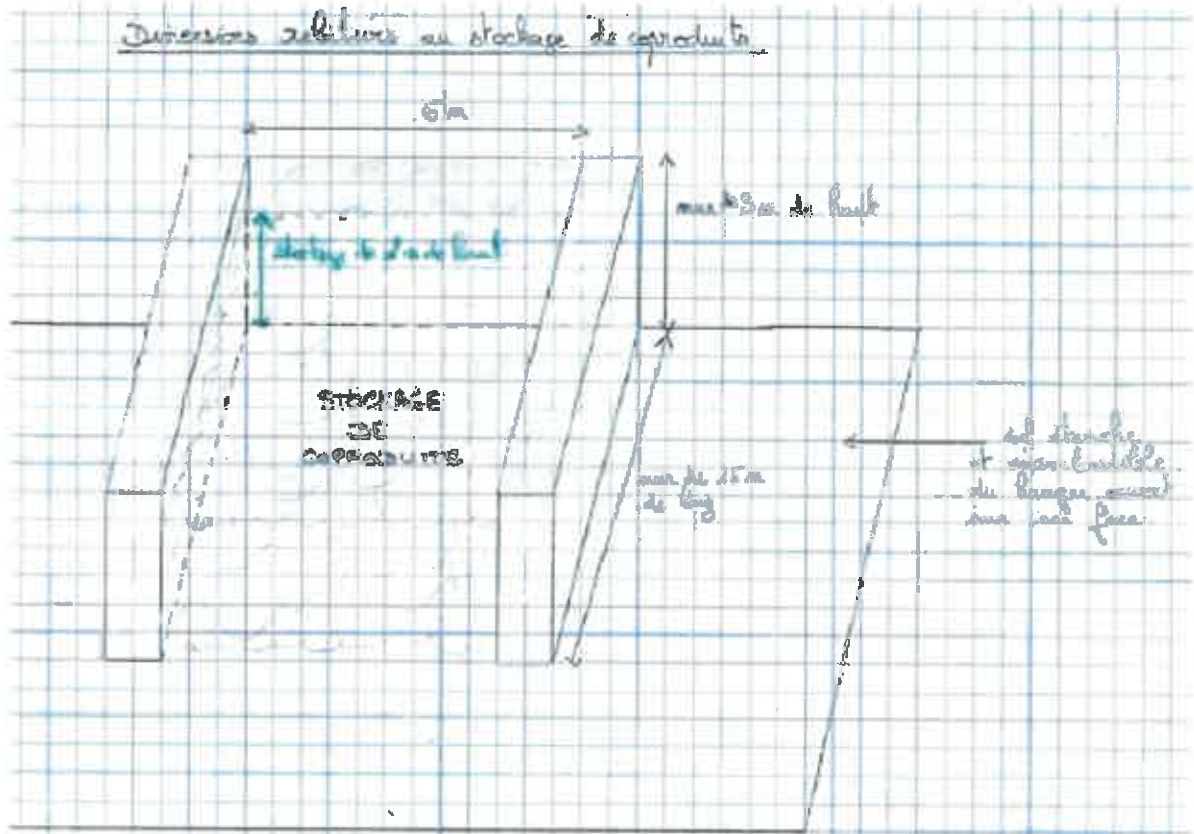 Dimensions relatives au stockage de coproduits
6m
mur 3m de haut
stockage de 2m de haut
STOCKAGE
DE
COPRODUITS
mur de 15 m
de long
sol étanche
et
du hangar ouvert
sur une face